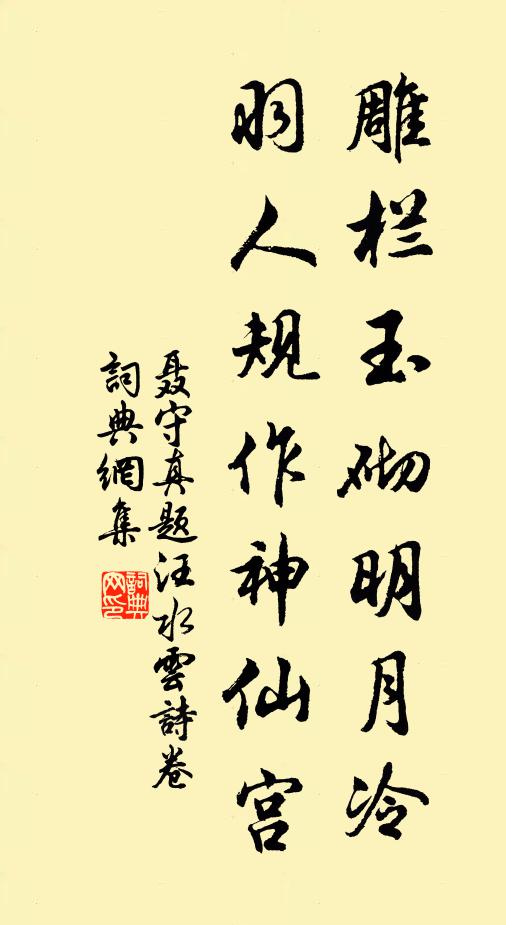 雕栏玉砌明月冷
羽人规作神仙宫
聂守真题汪水雲詩卷
詞典網集
詞典
网印